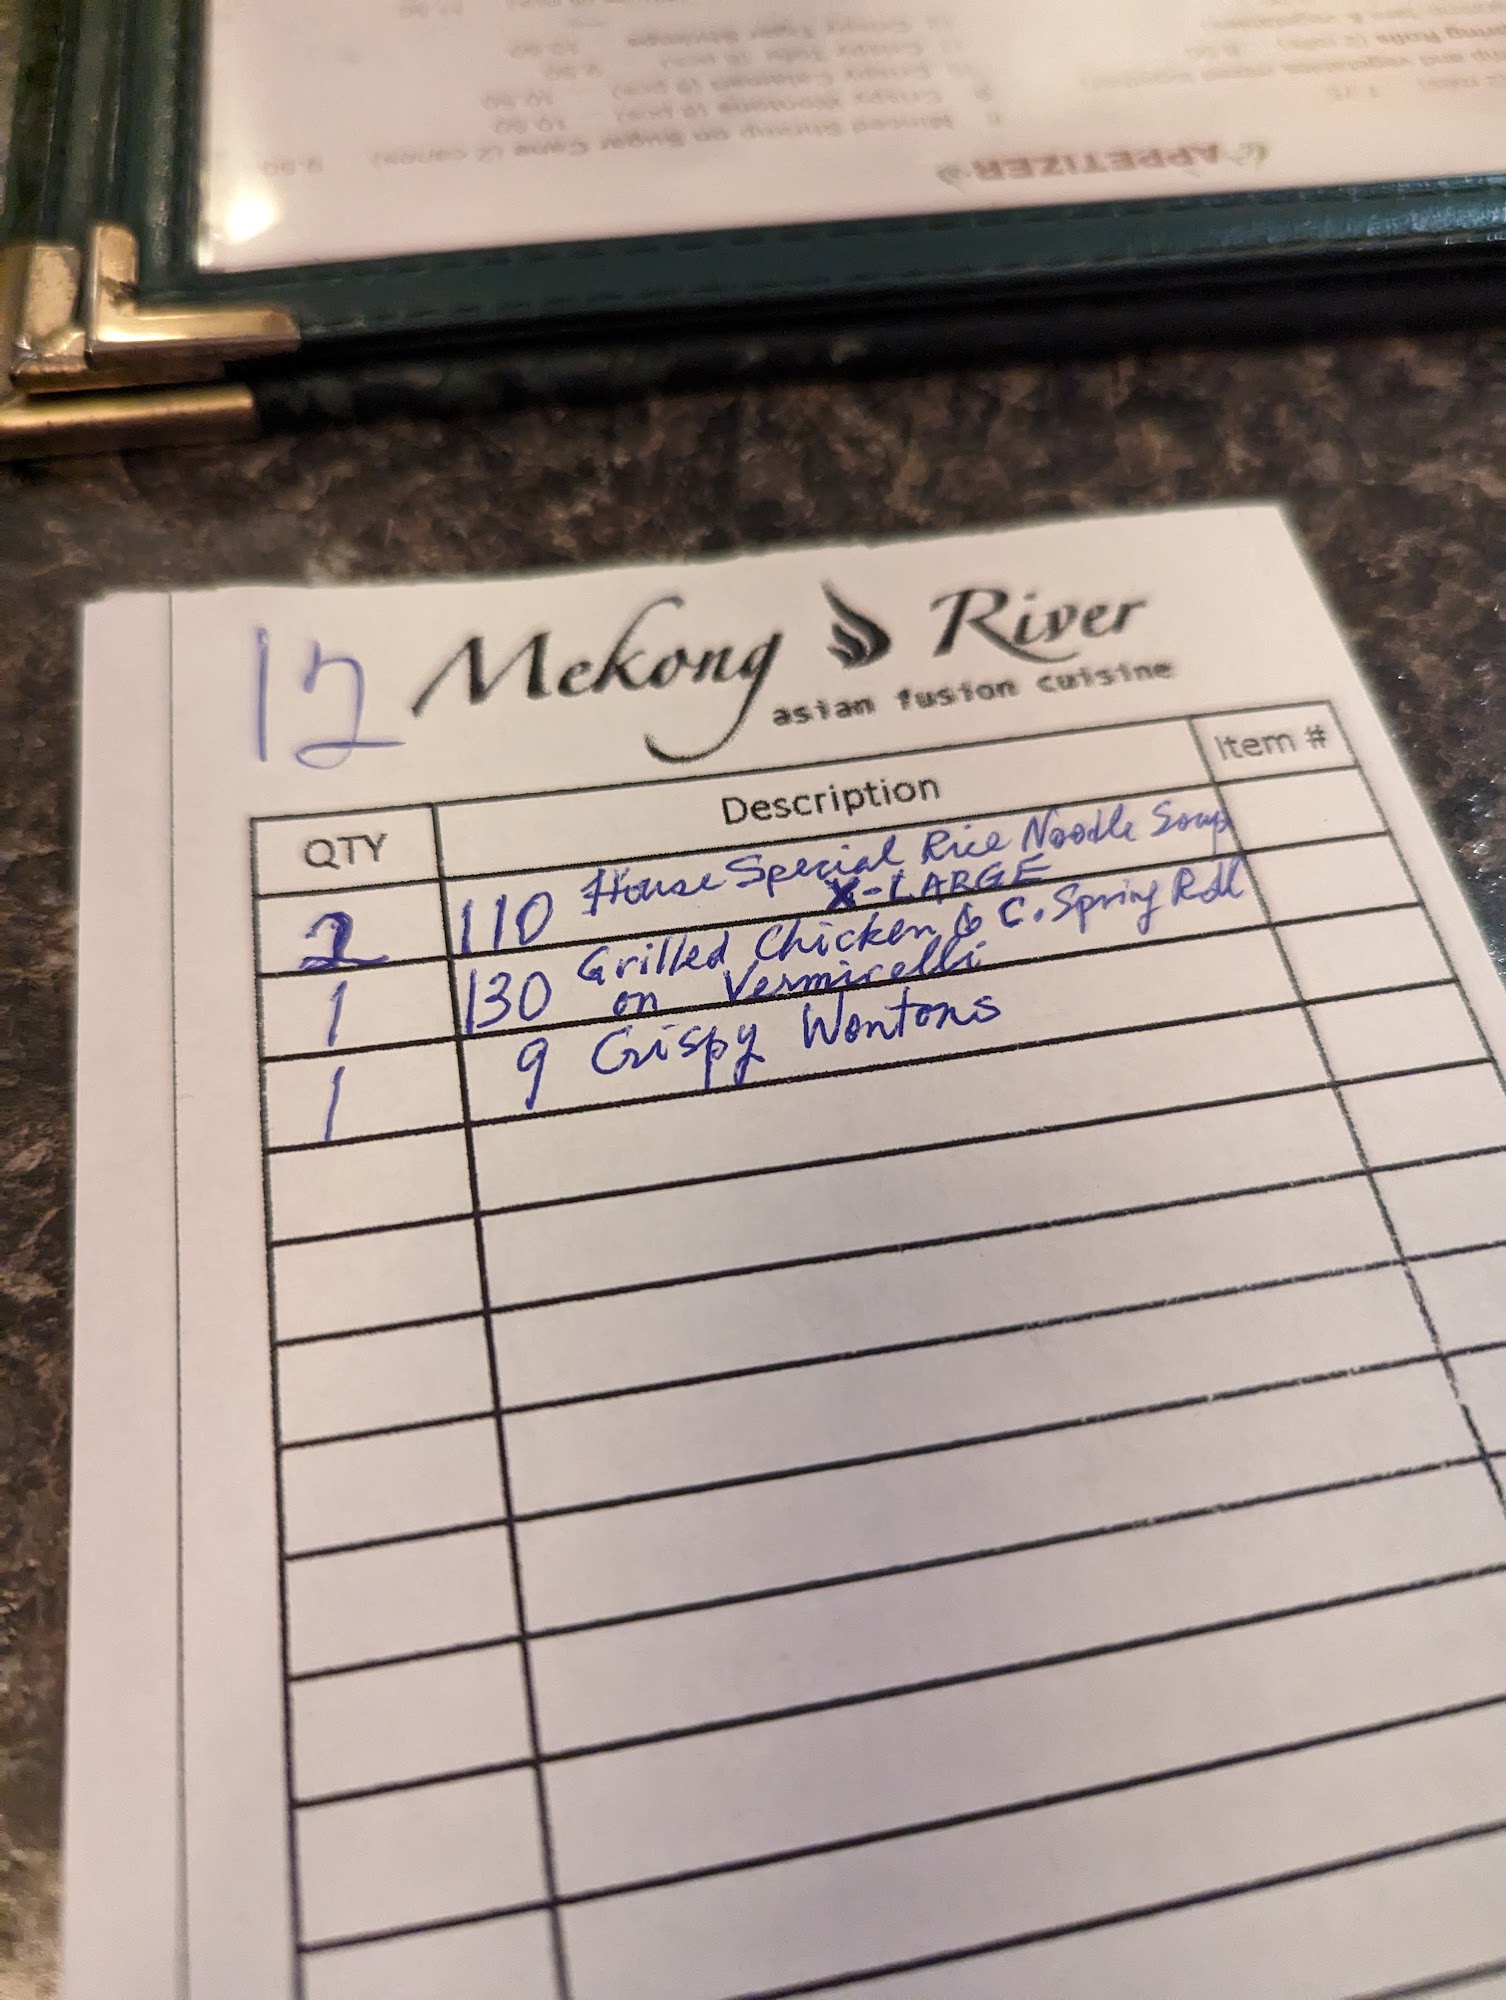 Minced Shrimp on Sugar Cane (2 canes) 9.90
9 Crispy Wontons (8 pcs) 10.90
Crispy Calamari (8 pcs) 10.90
Crispy Tofu (8 pcs) 9.90
Crispy Tiger Shrimps 10.90
APPETIZER
12
Mekong River
asian fusion cuisine
QTY Description Item #
2 110 House Special Rice Noodle Soup
X-LARGE
1 130 Grilled Chicken & C. Spring Roll
on Vermicelli
1 9 Crispy Wontons